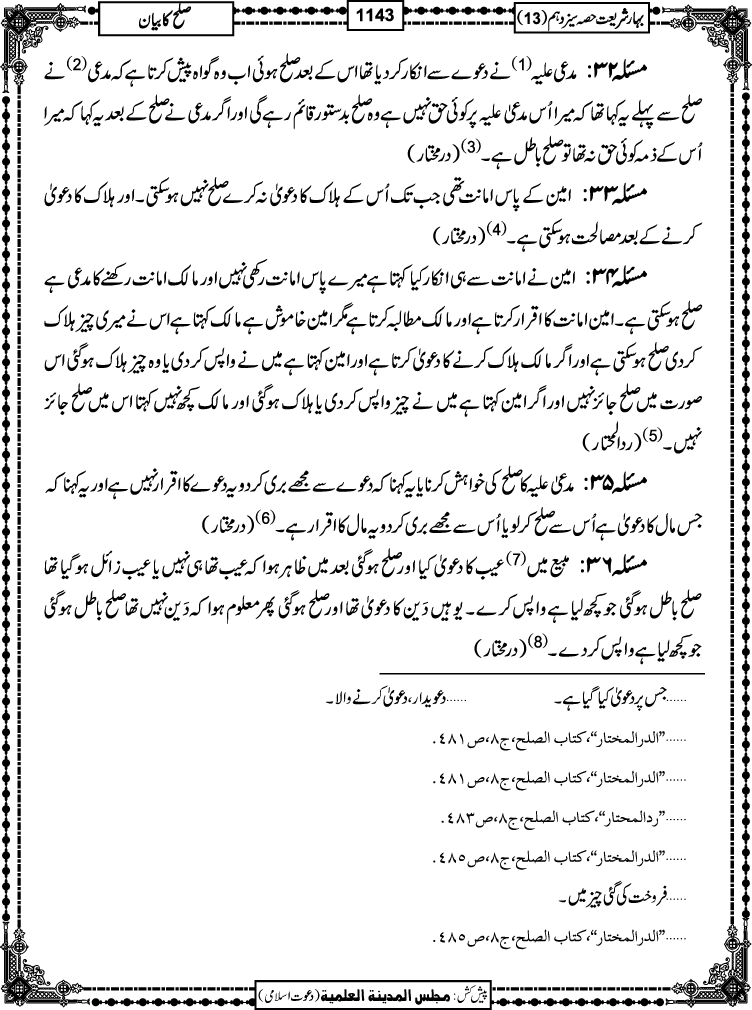 بہارشریعت حصہ سیزدہم (13)
1143
صلح کا بیان
مسئلہ ۳۲: مدعی علیہ(1) نے دعوے سے انکار کر دیا تھا اس کے بعد صلح ہوئی اب وہ گواہ پیش کرتا ہے کہ مدعی(2) نے
صلح سے پہلے یہ کہا تھا کہ میرا اُس مدعیٰ علیہ پر کوئی حق نہیں ہے وہ صلح بدستور قائم رہے گی اور اگر مدعی نے صلح کے بعد یہ کہا کہ میرا
اُس کے ذمہ کوئی حق نہ تھا تو صلح باطل ہے۔(3) (درمختار)
مسئلہ ۳۳: امین کے پاس امانت تھی جب تک اُس کے ہلاک کا دعویٰ نہ کرے صلح نہیں ہوسکتی۔ اور ہلاک کا دعویٰ
کرنے کے بعد مصالحت ہوسکتی ہے۔(4) (درمختار)
مسئلہ ۳۴: امین نے امانت سے ہی انکار کیا کہتا ہے میرے پاس امانت رکھی نہیں اور مالک امانت رکھنے کا مدعی ہے
صلح ہوسکتی ہے۔ امین امانت کا اقرار کرتا ہے اور مالک مطالبہ کرتا ہے مگر امین خاموش ہے مالک کہتا ہے اس نے میری چیز ہلاک
کردی صلح ہوسکتی ہے اور اگر مالک ہلاک کرنے کا دعویٰ کرتا ہے اور امین کہتا ہے میں نے واپس کردی یا وہ چیز ہلاک ہوگئی اس
صورت میں صلح جائز نہیں اور اگر امین کہتا ہے میں نے چیز واپس کردی یا ہلاک ہوگئی اور مالک کچھ نہیں کہتا اس میں صلح جائز
نہیں۔(5) (ردالمحتار)
مسئلہ ۳۵: مدعیٰ علیہ کا صلح کی خواہش کرنا یا یہ کہنا کہ دعوے سے مجھے بری کردو یہ دعوے کا اقرار نہیں ہے اور یہ کہنا کہ
جس مال کا دعویٰ ہے اُس سے صلح کرلو یا اُس سے مجھے بری کردو یہ مال کا اقرار ہے۔(6) (درمختار)
مسئلہ ۳۶: مبیع میں(7) عیب کا دعویٰ کیا اور صلح ہوگئی بعد میں ظاہر ہوا کہ عیب تھا ہی نہیں یا عیب زائل ہوگیا تھا
صلح باطل ہوگئی جو کچھ لیا ہے واپس کرے۔ یوہیں دَین کا دعویٰ تھا اور صلح ہوگئی پھر معلوم ہوا کہ دَین نہیں تھا صلح باطل ہوگئی
جو کچھ لیا ہے واپس کردے۔(8) (درمختار)
......جس پر دعویٰ کیا گیا ہے۔ ......دعویدار، دعویٰ کرنے والا۔
......”الدرالمختار“، کتاب الصلح، ج٨، ص٤٨١.
......”الدرالمختار“، کتاب الصلح، ج٨، ص٤٨١.
......”ردالمحتار“، کتاب الصلح، ج٨، ص٤٨٣.
......”الدرالمختار“، کتاب الصلح، ج٨، ص٤٨٥.
......فروخت کی گئی چیز میں۔
......”الدرالمختار“، کتاب الصلح، ج٨، ص٤٨٥.
پیش کش: مجلس المدینۃ العلمیۃ (دعوت اسلامی)